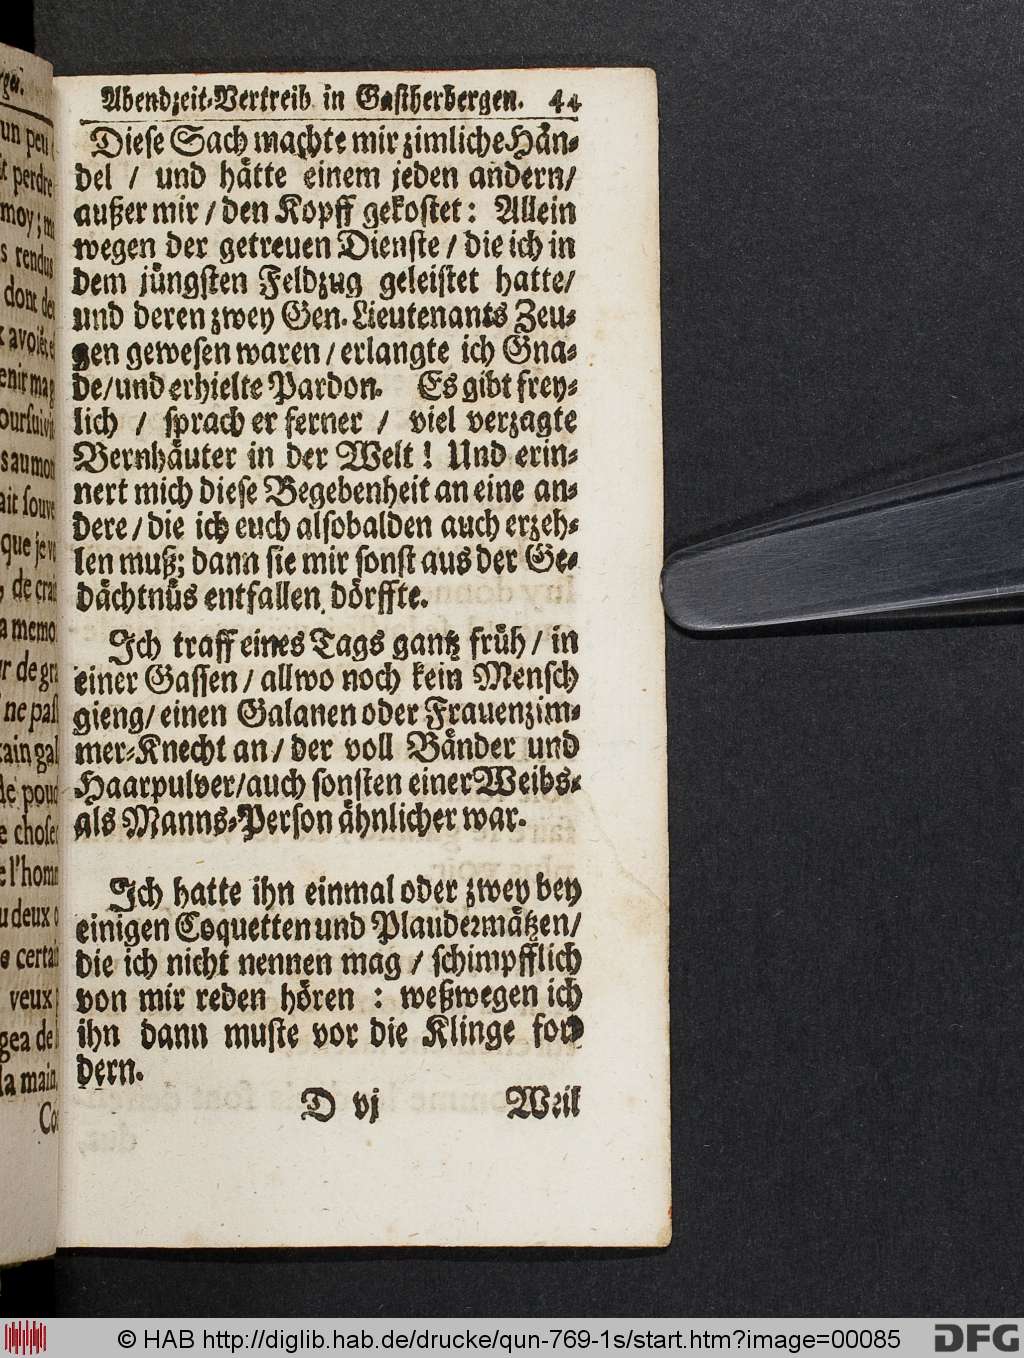 Abendzeit-Vertreib in Gastherbergen. 44
Diese Sach machte mir zimliche Hän-
del / und hätte einem jeden andern/
außer mir / den Kopff gekostet: Allein
wegen der getreuen Dienste / die ich in
dem jüngsten Feldzug geleistet hatte/
und deren zwey Gen. Lieutenants Zeu-
gen gewesen waren / erlangte ich Gna-
de/ und erhielte Pardon. Es gibt frey-
lich / sprach er ferner / viel verzagte
Bernhäuter in der Welt! Und erin-
nert mich diese Begebenheit an eine an-
dere / die ich euch alsobalden auch erzeh-
len muß; dann sie mir sonst aus der Ge-
dächtnüs entfallen dörffte.
Ich traff eines Tags gantz früh / in
einer Gassen / allwo noch kein Mensch
gieng/ einen Galanen oder Frauenzim-
mer-Knecht an / der voll Bänder und
Haarpulver/ auch sonsten einer Weibs-
als Manns-Person ähnlicher war.
Ich hatte ihn einmal oder zwey bey
einigen Coquetten und Plaudermätzen/
die ich nicht nennen mag / schimpfflich
von mir reden hören : weßwegen ich
ihn dann muste vor die Klinge for
dern.
D vj Weil
un peu
perdre
moy;
s rendus
dont
avoiẽt
enir
saumon
ait souve
que je
de
a memo
de
ne
ain gal
de
chose
l'hom
u deux
certai
veux
gea de
la main,
© HAB http://diglib.hab.de/drucke/qun-769-1s/start.htm?image=00085
DFG